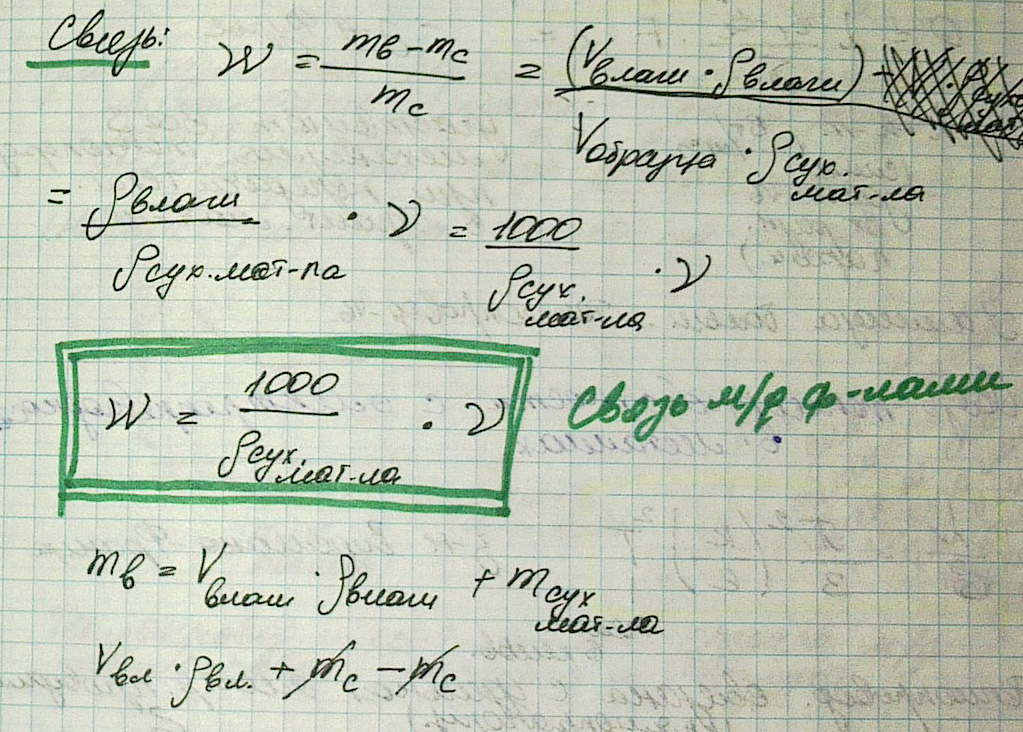 Связь: W = (mв - mс) / mс = (Vвлаги · ρвлаги) / (Vобразца · ρсух. мат-ла)
= ρвлаги / ρсух.мат-ла · ν = 1000 / ρсух. мат-ла · ν
W = 1000 / ρсух. мат-ла · ν
Связь м/д ф-лами
mв = Vвлаги · ρвлаги + mсух мат-ла
Vвл · ρвл. + mс - mс